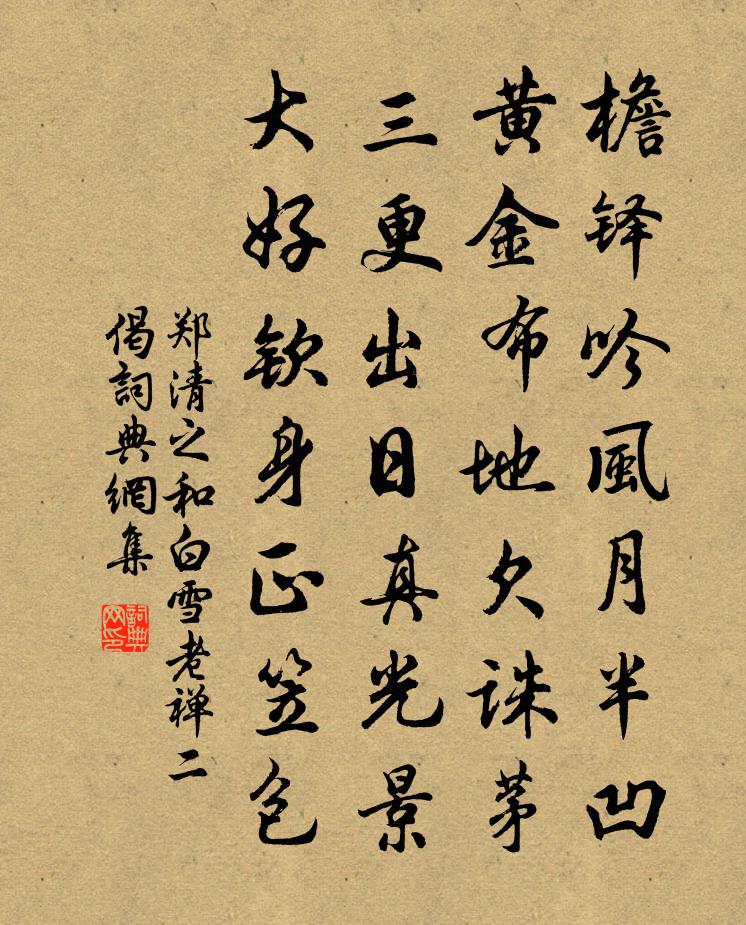 檐铎吟風月半凹
黄金布地欠诛茅
三更出日真光景
大好欽身正笠包
郑清之和白雪老禅二
偈詞典網集
詞典網印